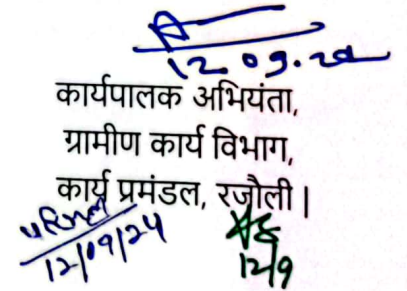 12.09.24
कार्यपालक अभियंता,
ग्रामीण कार्य विभाग,
कार्य प्रमंडल, रजौली |
12/09/24
12/9